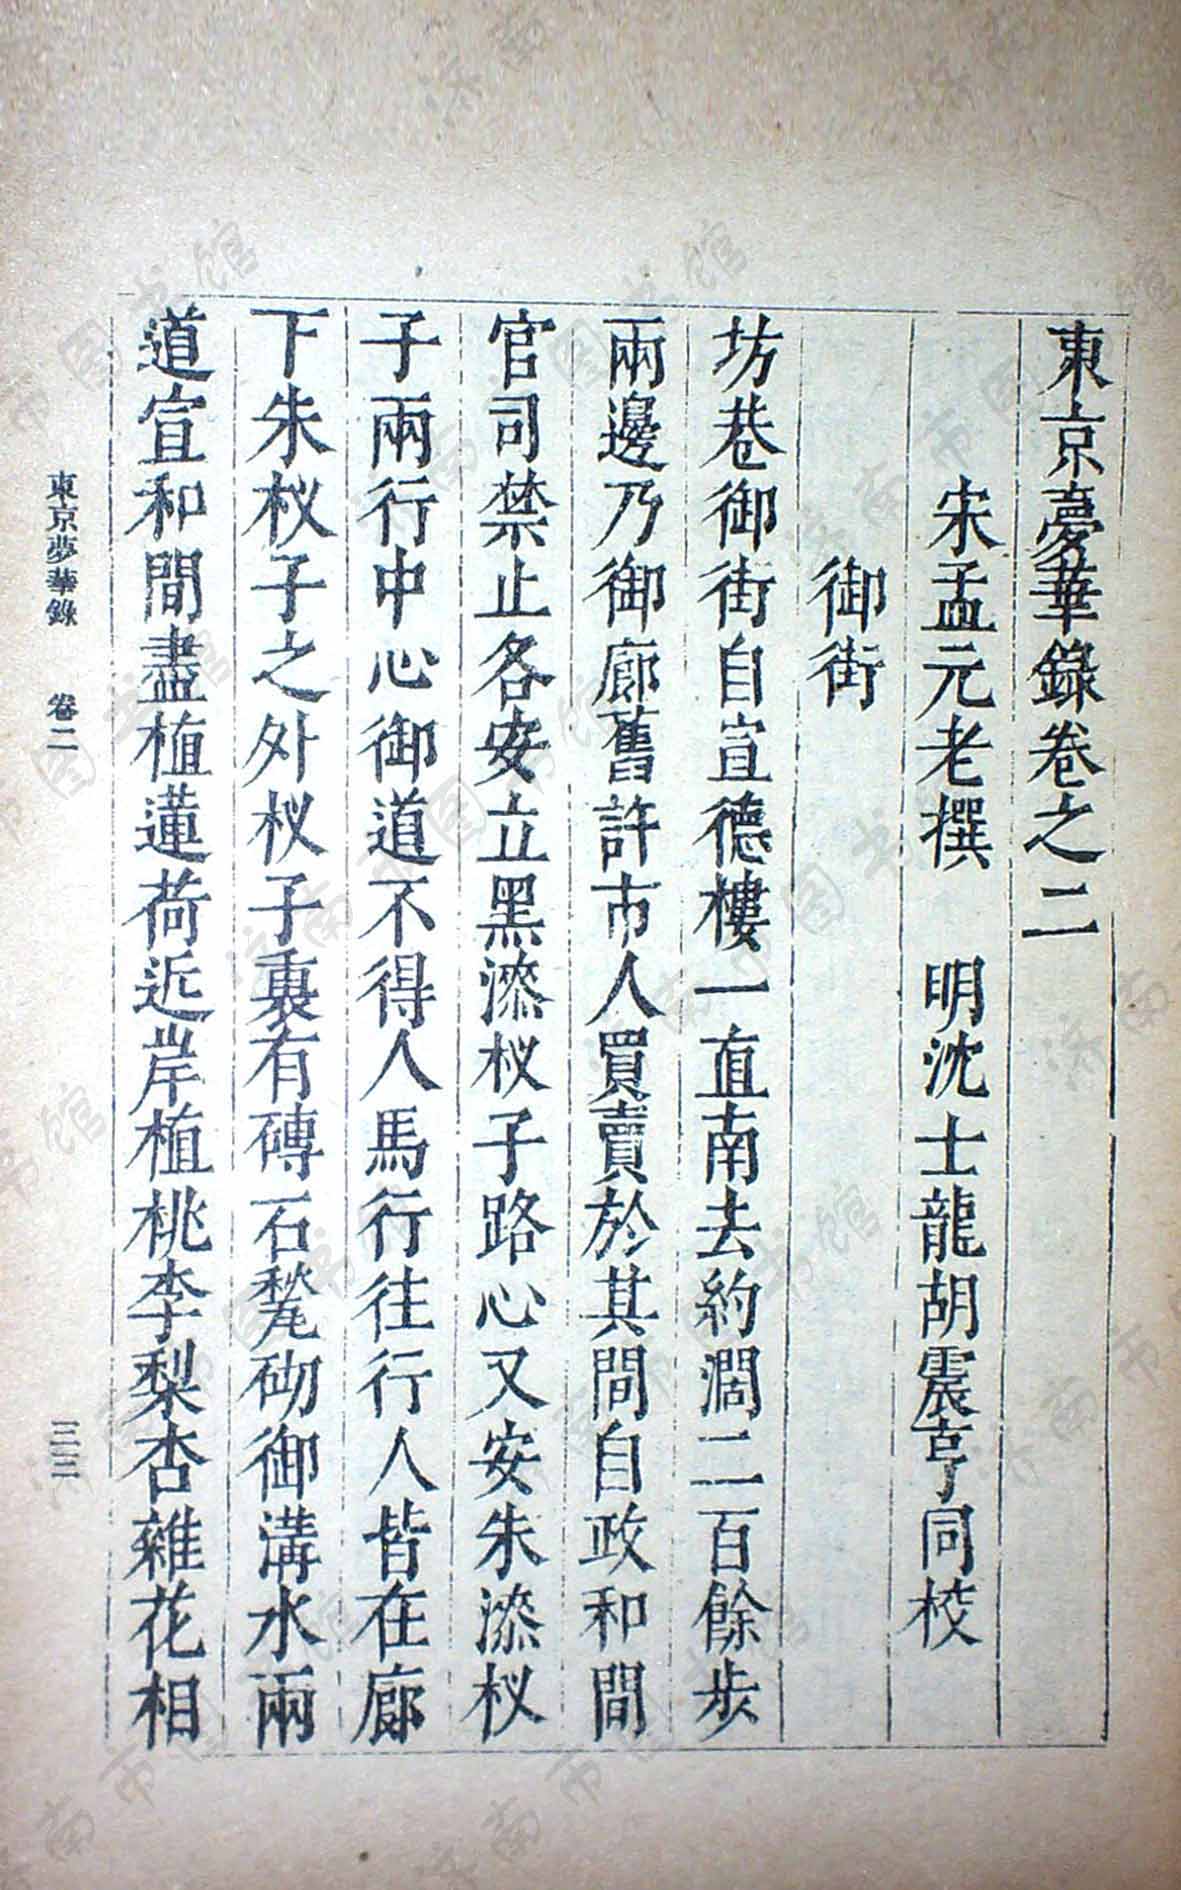 東京夢華錄卷之二
宋孟元老撰　明沈士龍胡震亨同校
御街
坊巷御街自宣德樓一直南去約濶二百餘步
兩邊乃御廊舊許市人買賣於其間自政和間
官司禁止各安立黑漆杈子路心又安朱漆杈
子兩行中心御道不得人馬行往行人皆在廊
下朱杈子之外杈子裏有磚石甃砌御溝水兩
道宣和間盡植蓮荷近岸植桃李梨杏雜花相
東京夢華錄　卷二　三三
济南市图书馆